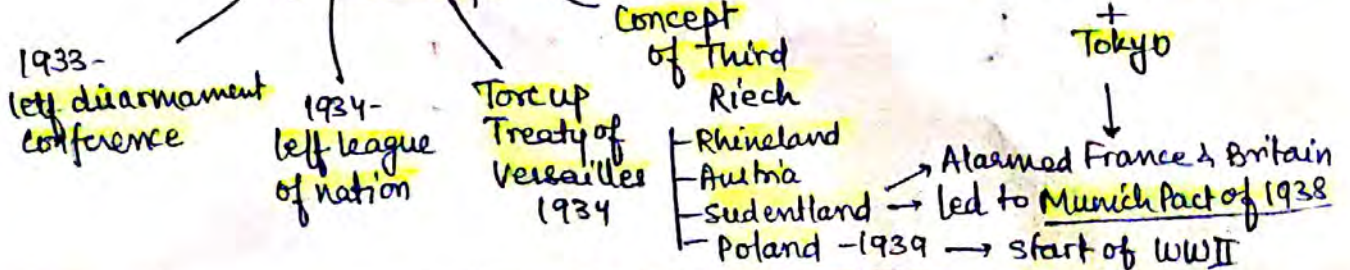 1933-
left disarmament
conference
1934-
left league
of nation
Tore up
Treaty of
Versailles
1934
Concept
of Third
Riech
Rhineland
Austria
Sudentland → Alarmed France & Britain
→ led to Munich Pact of 1938
Poland -1939 → start of WWII
+
Tokyo